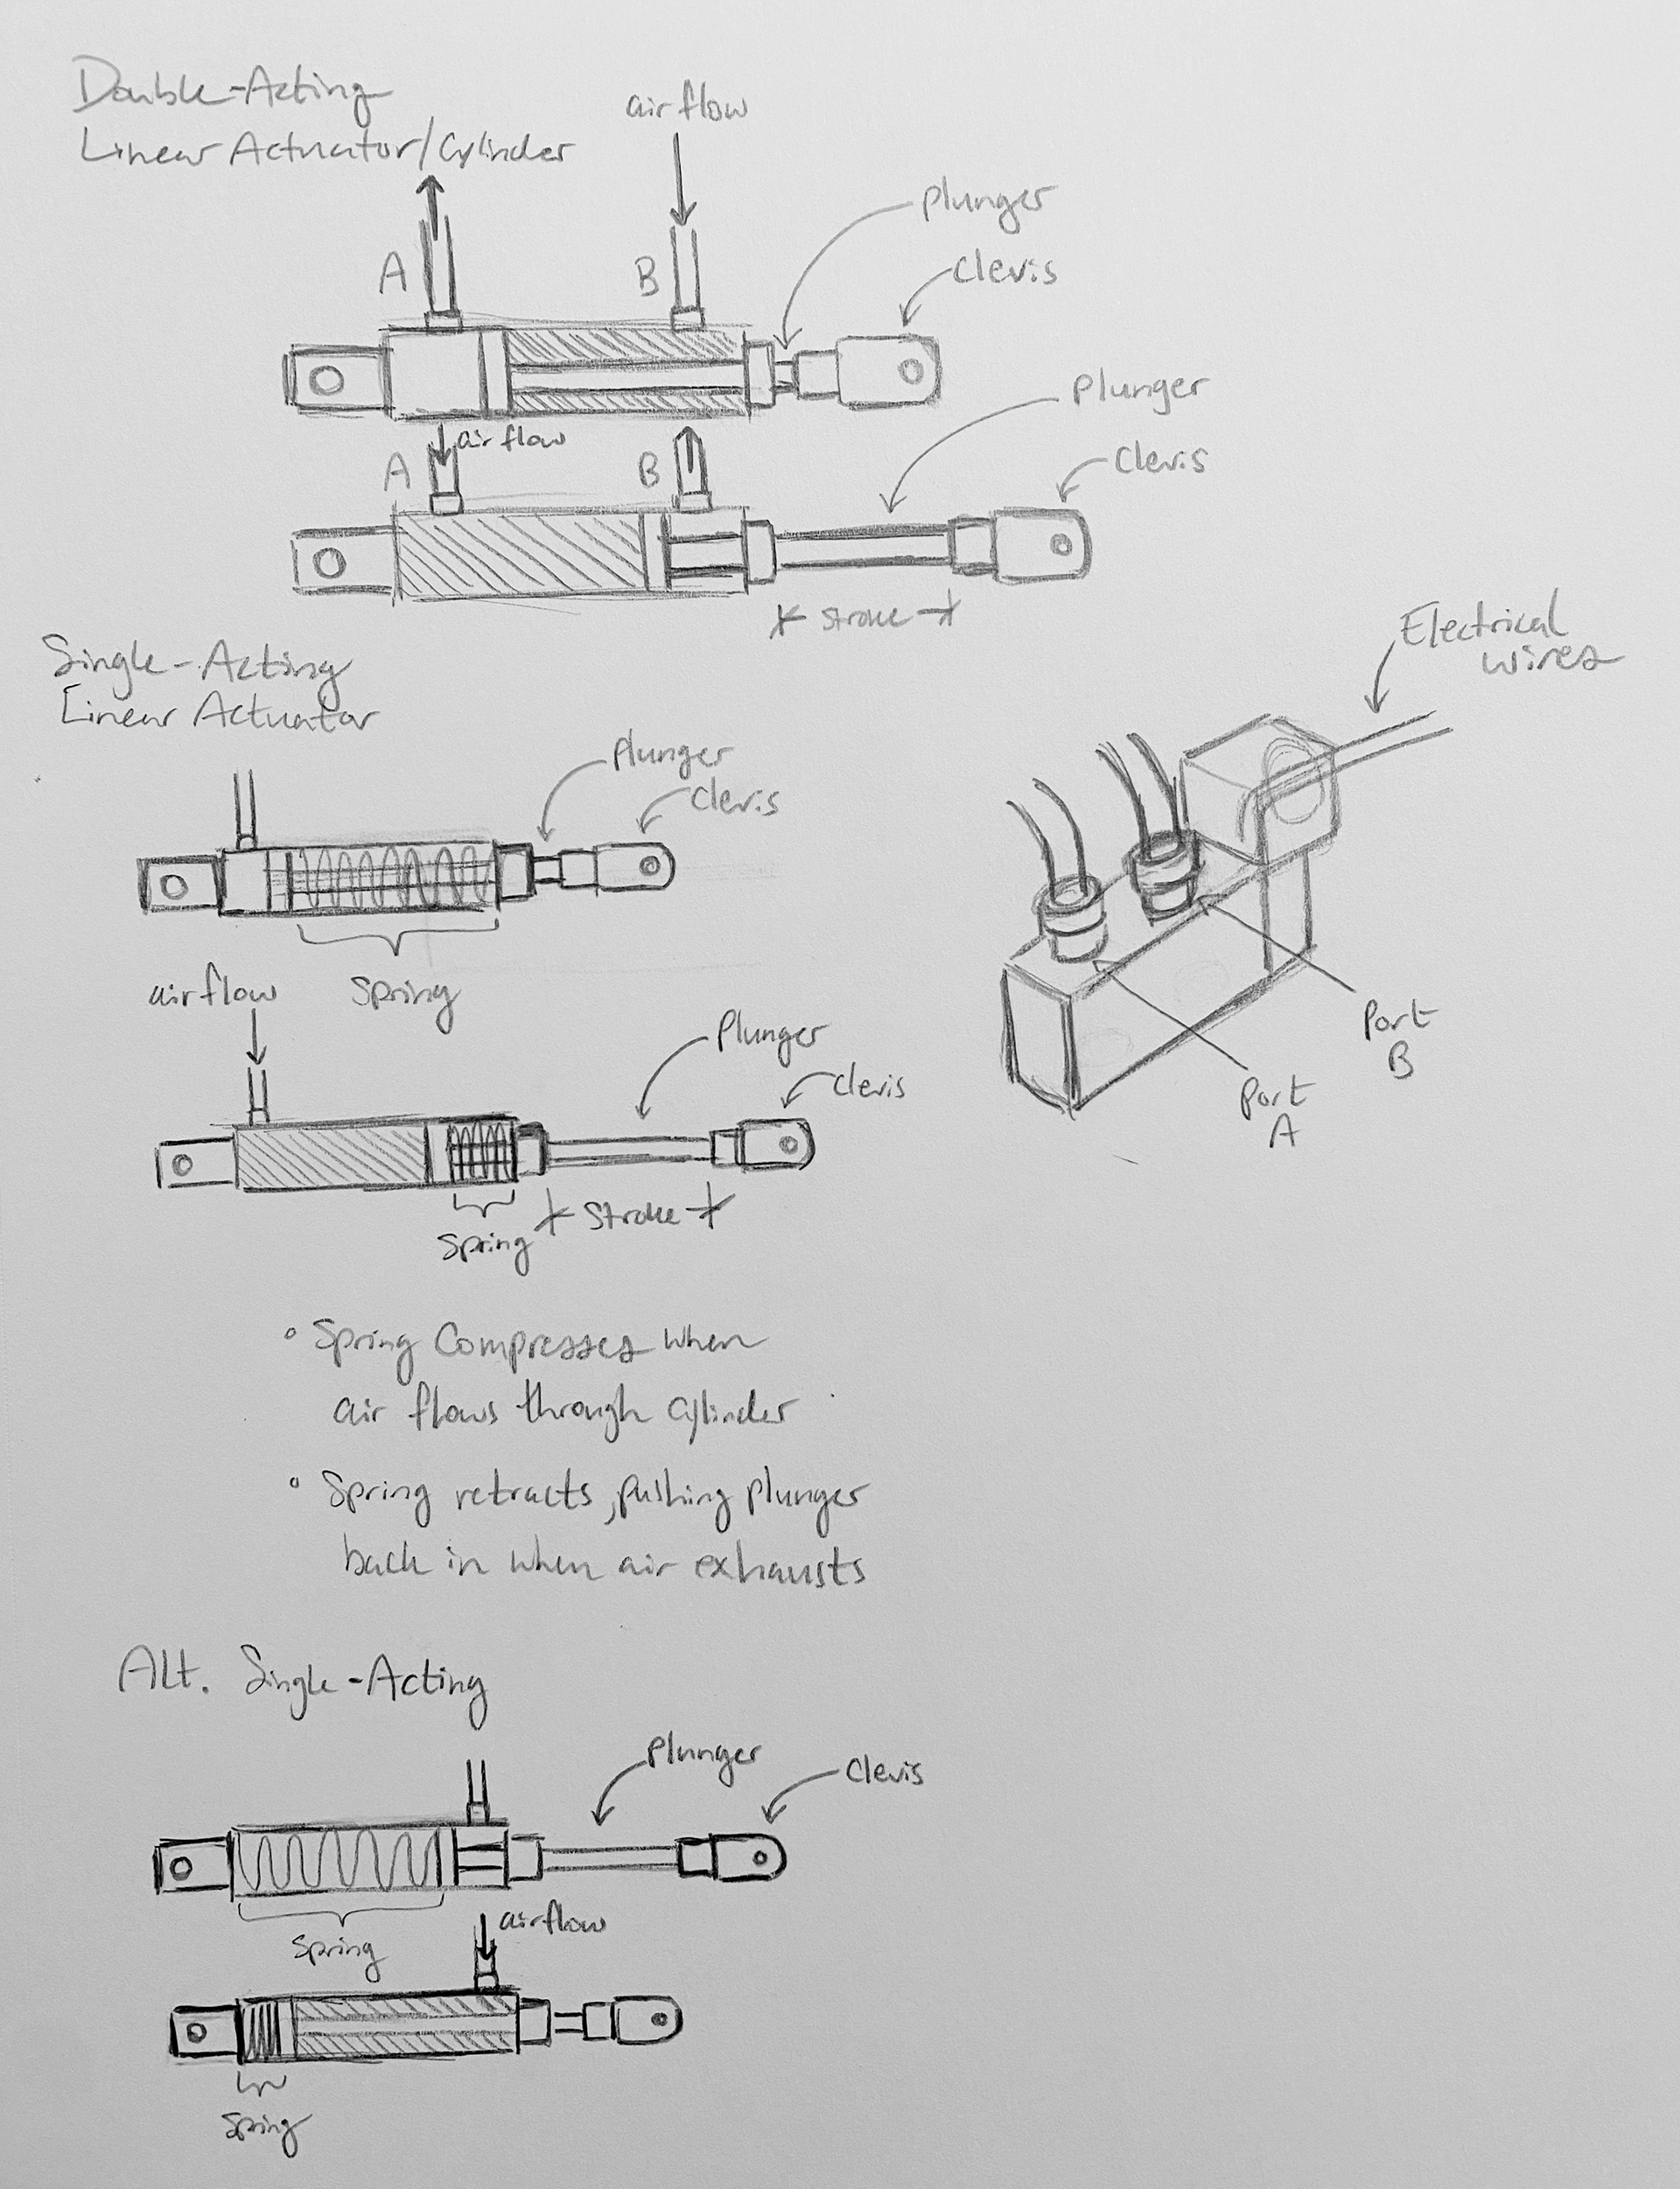 Double-Acting
Linear Actuator/Cylinder
air flow
A
B
Plunger
Clevis
air flow
A
B
Plunger
Clevis
Stroke
Single-Acting
Linear Actuator
Plunger
Clevis
Spring
air flow
Plunger
Clevis
Spring
Stroke
Electrical
wires
Port
B
Port
A
° Spring Compresses when
air flows through cylinder
° Spring retracts, pushing plunger
back in when air exhausts
Alt. Single-Acting
Plunger
Clevis
Spring
airflow
Spring